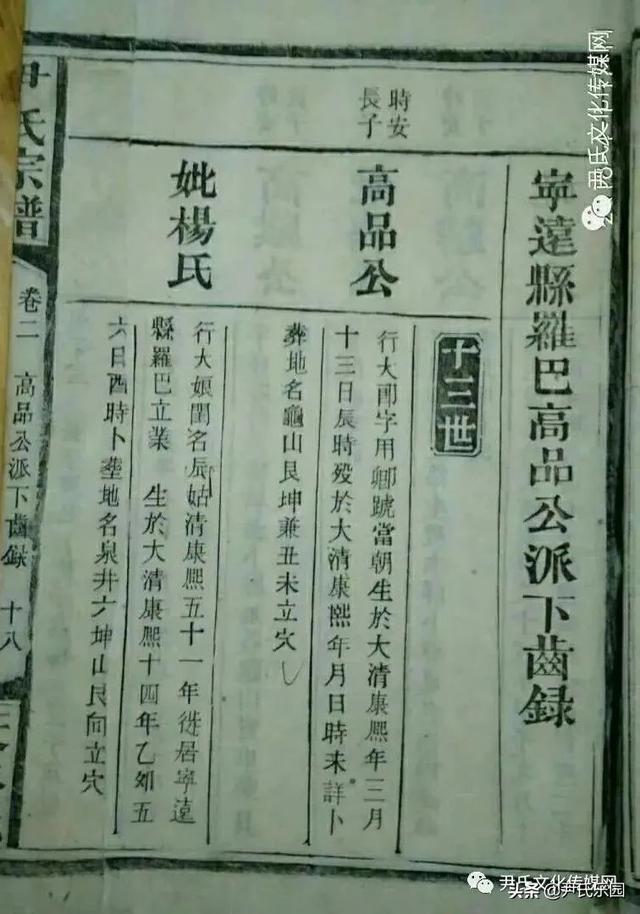 寧遠縣羅巴高品公派下齒録
十三世
時安
長子
高品公
行大郎字用卿號當朝生於大清康熙年三月
十三日辰時殁於大清康熙年月日時未詳卜
葬地名龜山艮坤兼丑未立穴
妣楊氏
行大娘閨名辰姑清康熙五十一年徙居寧遠
縣羅巴立業 生於大清康熙十四年乙卯五
六日酉時卜塟地名泉井六坤山艮向立穴
尹氏宗譜
卷二
高品公派下齒録
十八
尹氏文化传媒网
尹氏文化传媒网
头条@尹氏乐园